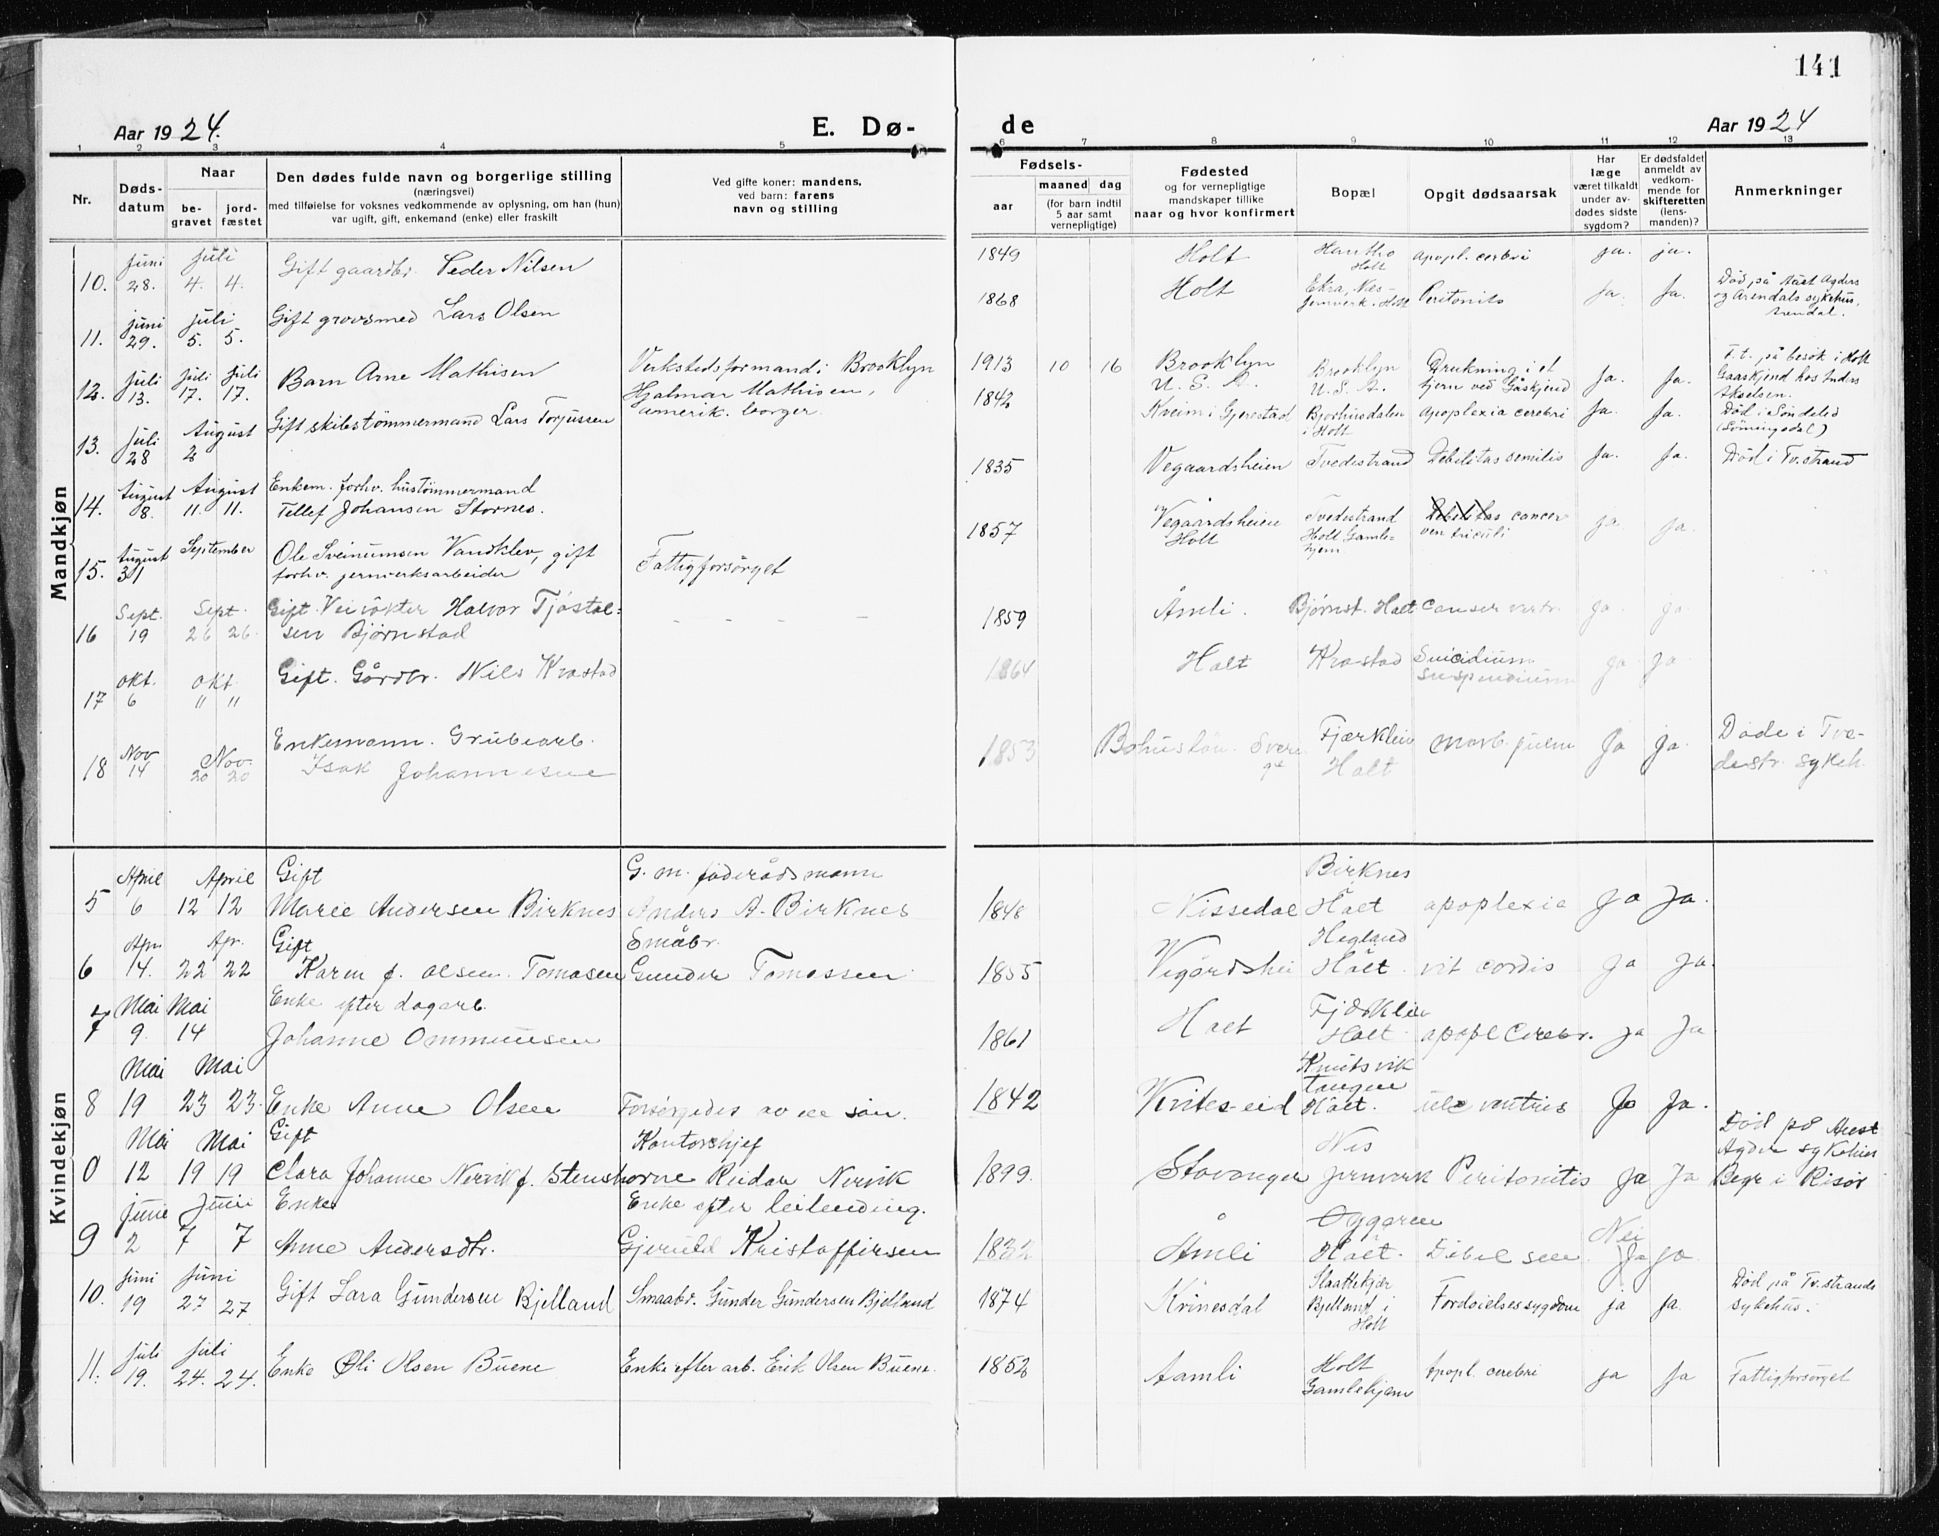 141
Aar 1924.
E. Dø-
de
Aar 1924
1 2 3 4 5 6 7 8 9 10 11 12 13
Nr.
Døds-
datum
Naar
be-
gravet
jord-
fæstet
Den dødes fulde navn og borgerlige stilling
(næringsvei)
med tilføielse for voksnes vedkommende av oplysning, om han (hun)
var ugift, gift, enkemand (enke) eller fraskilt
Ved gifte koner: mandens,
ved barn: farens
navn og stilling
Fødsels-
aar
maaned
dag
(for barn indtil
5 aar samt
vernepligtige)
Fødested
og for vernepligtige
mandskaper tillike
naar og hvor konfirmert
Bopæl
Opgit dødsaarsak
Har
læge
været tilkaldt
under av-
dødes sidste
sygdom?
Er dødsfaldet
anmeldt av
vedkom-
mende for
skifteretten
(lens-
manden)?
Anmerkninger
Mandkjøn
10. Juni 28. Juli 4. 4. Gift gaardbr. Peder Nilsen
1849 Holt Holt Apopl. cerebri ja. ja.
11. Juni 29. Juli 5. 5. Gift grovsmed Lars Olsen
1868 Holt Ekra, Næs Jernverk. Holt Peritonits Ja. Ja. Død på Aust Agders
og Arendals sykehus,
Arendal.
12. Juli 13. Juli 17. Juli 17. Barn Arne Mathisen
Verkstedsformand i Brooklyn
Hjalmar Mathisen,
amerik. borger.
1913 10 16 Brooklyn U. S. A. Brooklyn U. S. A. Drukning i et
tjern ved Gåskjend Ja. Ja. F. t. på besøk i Holt
Gaaskjend hos Anders
Akselsen.
13. Juli 28 August 2 Gift skibstømmermand Lars Torjussen
1842 Kveim i Gjerestad Bjorhusdalen i Holt Apoplexia cerebri Ja. Ja. Død i Søndeled
14. August 8. August 11. 11. Enkem. forhv. hustømmermand
Tellef Johansen Stornes.
1835 Vegaardsheien Tvedestrand Debilitas senilis Ja. Ja. Død i Tv.strand
15. August 31 September Ole Sveinumsen Vandklev, gift
forhv. jernverksarbeider
Fattigforsørget
1857 Vegaardsheien Holt Tvedestrand Holt Gamle-
hjem Debilitas cancer
ventriculi ja ja.
16 Sept. 19 Sept. 26 26. Gift. Veivokter Halvor Tjøstol-
sen Bjørnstad
1859 Åmli. Bjørnst. Holt Canser ventr. ja ja
17 Okt. 6 Okt. 11 11 Gift. Gårdbr. Nils Krostad
1864 Holt Krostad Suicidium
suspendium ja ja
18 Nov 14 Nov. 20 20 Enkemann. Grubearb.
Isak Johannesen
1853 Fjærkleiv
Holt morb. pulm Ja Ja. Døde i Tve-
destr. sykeh.
Kvindekjøn
5 April 6 April 12 12 Gift
Marie Andersen Birknes
G. m. føderådsmann
Anders A. Birknes
1848 Nissedal Birknes
Holt apoplexia Ja Ja.
6 Apr. 14. Apr. 22 22 Gift
Karen f. Olsen. Tomasen
Småbr.
Gunder Tomassen
1855 Vegårdshei Hegland
Holt. vit cordis Ja Ja.
7 Mai 9. Mai 14 Enke efter dagarb.
Johanne Ommunsen
1861 Holt Holt apopl Cerebr. Ja Ja
8 Mai 19 Mai 23 23. Enke Anne Olsen
Forsørgedes av en søn.
1842 Kvites-eid Knutsvik
tangen
Holt. ulc ventris Ja Ja.
0 Mai 12 Mai 19 19 Gift
Clara Johanne Nervik f. Stenshorne
Kontorchjef
Reidar Nervik
1899. Stavanger Nes
jernverk Peritonitis Ja Ja Død på Aust
Agder sykehus
Begr i Risør
9 Juni 2 Juni 7 7 Enke
Anne Andersdtr.
Enke efter leilending.
Gjeruld Kristoffersen
1832 Åmli Holt. Debil sen. Nei
Ja Ja
10. Juni 19 Juni 27 27 Gift Lara Gundersen Bjelland
Smaabr. Gunder Gundersen Bjelland
1874 Kvinesdal Slaattekjær
Bjelland i
Holt Fordøielsessygdom ja Ja. Død på Tv.strands
sykehus.
11. Juli 19. Juli 24. 24. Enke Øli Olsen Buene
Enke efter arb. Erik Olsen Buene.
1852 Aamli Holt
Gamlehjem Apopl. cerebri ja Ja Fattigforsørget